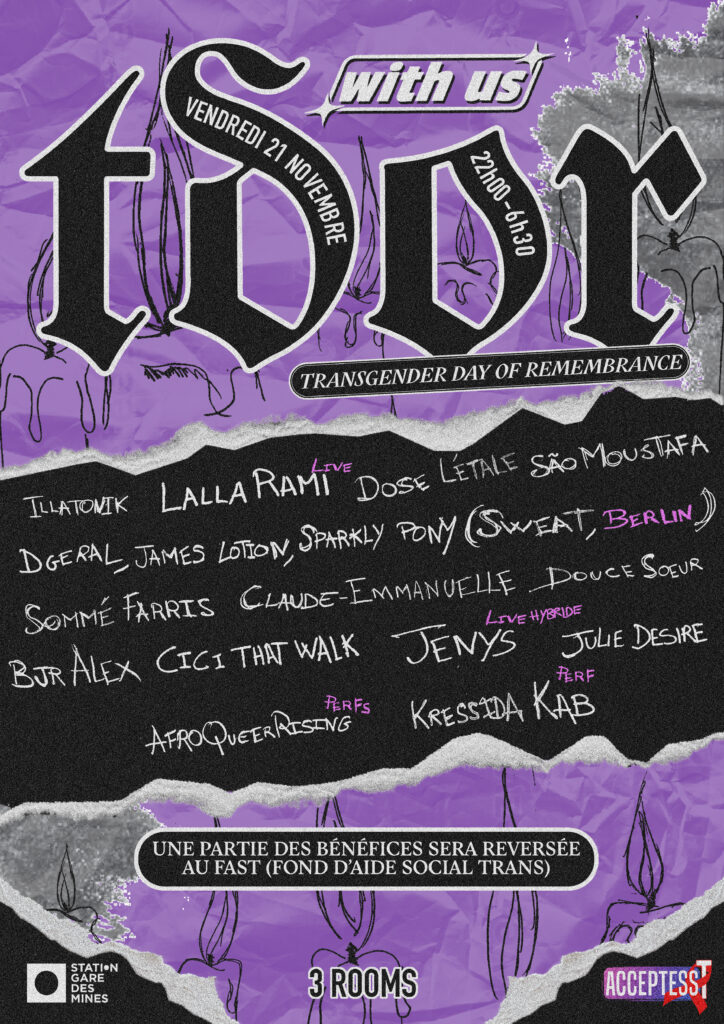 with us
tdor
VENDREDI 21 NOVEMBRE
22h00-6h30
TRANSGENDER DAY OF REMEMBRANCE
ILLATONIK LALLA RAMI LIVE DOSE LÉTALE SÃO MOUSTAFA
DGERAL, JAMES LOTION, SPARKLY PONY (SWEAT, BERLIN)
SOMMÉ FARRIS CLAUDE-EMMANUELLE DOUCE SŒUR
BJR ALEX CICI THAT WALK JENYS LIVE HYBRIDE JULIE DESIRE
AFROQUEERRISING PERFS KRESSIDA KAB PERF
UNE PARTIE DES BÉNÉFICES SERA REVERSÉE
AU FAST (FOND D'AIDE SOCIAL TRANS)
STATION
GARE
DES
MINES
3 ROOMS
ACCEPTESS T